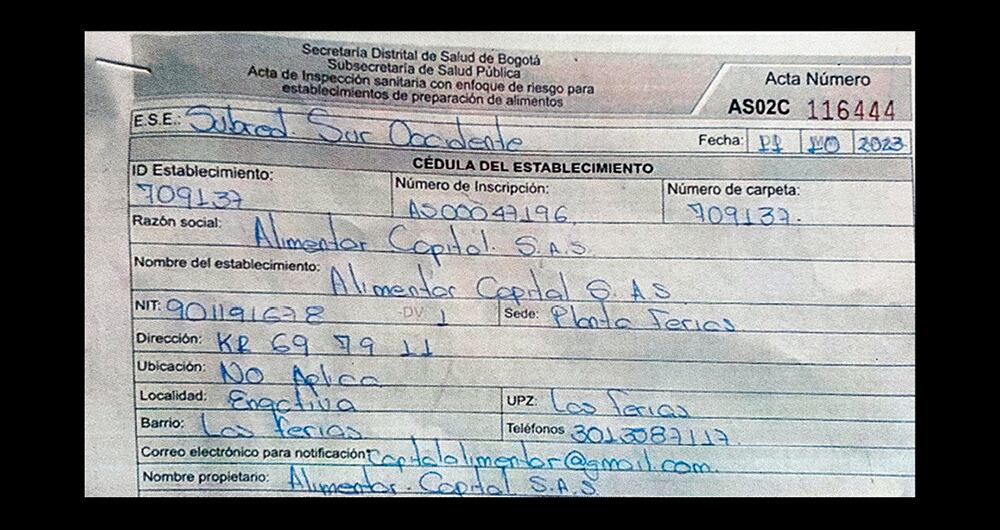 Secretaria Distrital de Salud de Bogotá
Subsecretaria de Salud Pública
Acta de Inspección sanitaria con enfoque de riesgo para
establecimientos de preparación de alimentos
Acta Número
AS02C 116444
E.S.E.: Subred Sur Occidente Fecha: 11 10 2023
CÉDULA DEL ESTABLECIMIENTO
ID Establecimiento: Número de Inscripción: Número de carpeta:
709137 AS00047196 709137.
Razón social: Alimentar Capital S.A.S.
Nombre del establecimiento: Alimentar Capital S.A.S
NIT: 901191678 -DV 1 Sede: Planta Ferias
Dirección: KR 69 79 11
Ubicación: No Aplica
Localidad: Engativa UPZ: Las Ferias
Barrio: Las Ferias Teléfonos 3013087117
Correo electrónico para notificación: Capitalalimentar@gmail.com
Nombre propietario: Alimentar Capital S.A.S